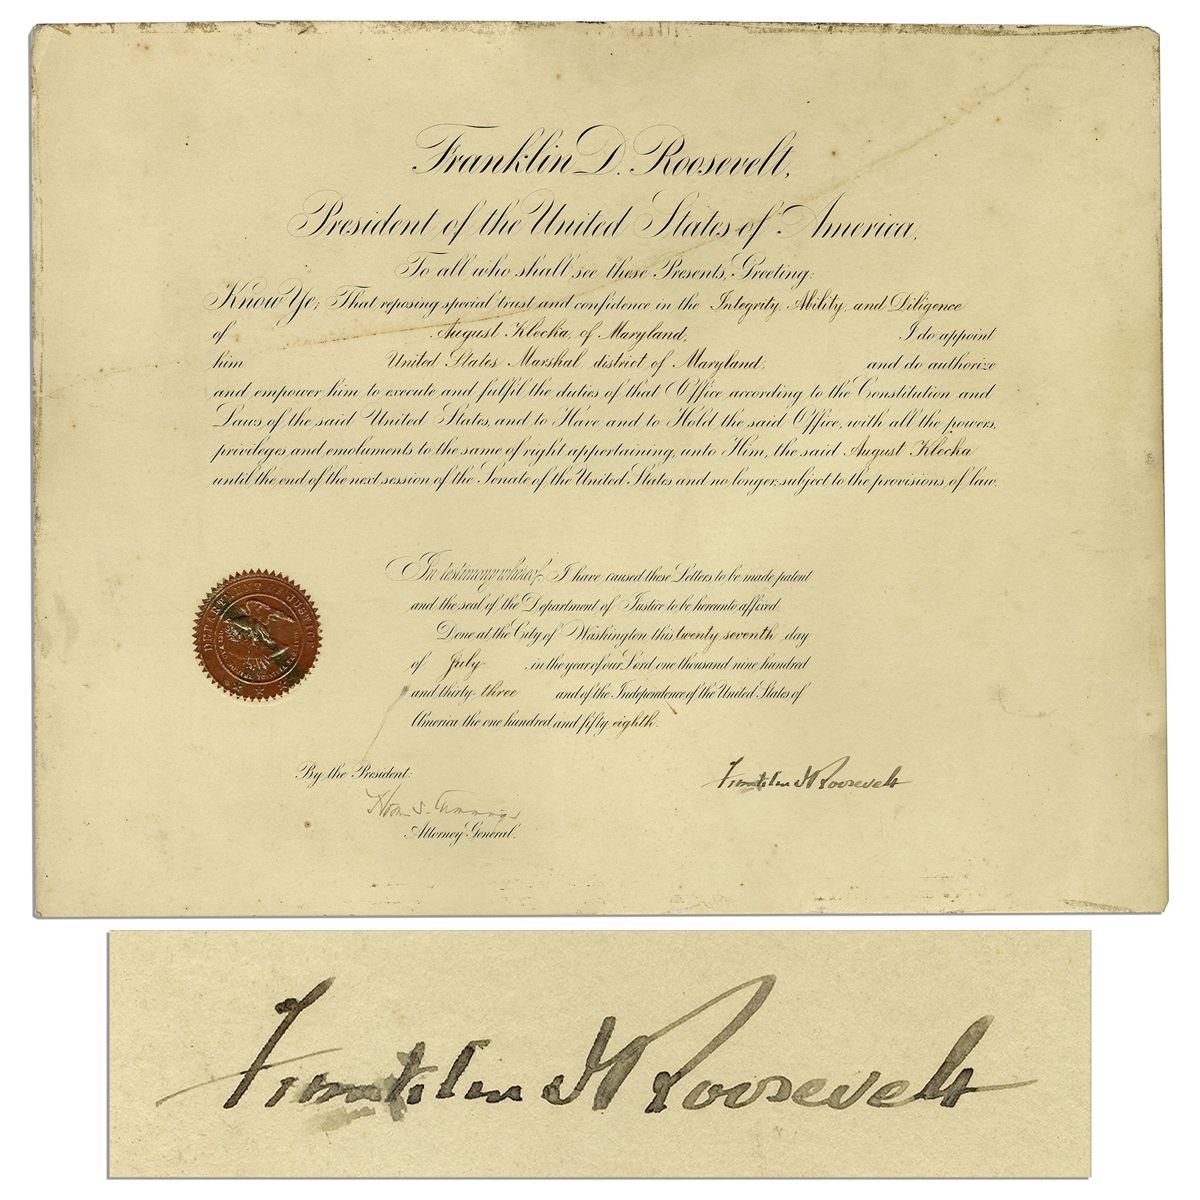 Franklin D. Roosevelt,
President of the United States of America,
To all who shall see these Presents, Greeting:
Know Ye; That reposing special trust and confidence in the Integrity, Ability, and Diligence
of August Klecka, of Maryland, I do appoint
him United States Marshal, district of Maryland, and do authorize
and empower him to execute and fulfil the duties of that Office according to the Constitution and
Laws of the said United States, and to Have and to Hold the said Office, with all the powers,
privileges and emoluments to the same of right appertaining, unto Him, the said August Klecka
until the end of the next session of the Senate of the United States and no longer, subject to the provisions of law.
In testimony whereof, I have caused these Letters to be made patent
and the seal of the Department of Justice to be hereunto affixed.
DEPARTMENT OF JUSTICE
Done at the City of Washington this twenty seventh day
of July, in the year of our Lord one thousand nine hundred
and thirty-three and of the Independence of the United States of
America the one hundred and fifty-eighth.
By the President:
Franklin D Roosevelt
Homer S. Cummings
Attorney General.
Franklin D Roosevelt